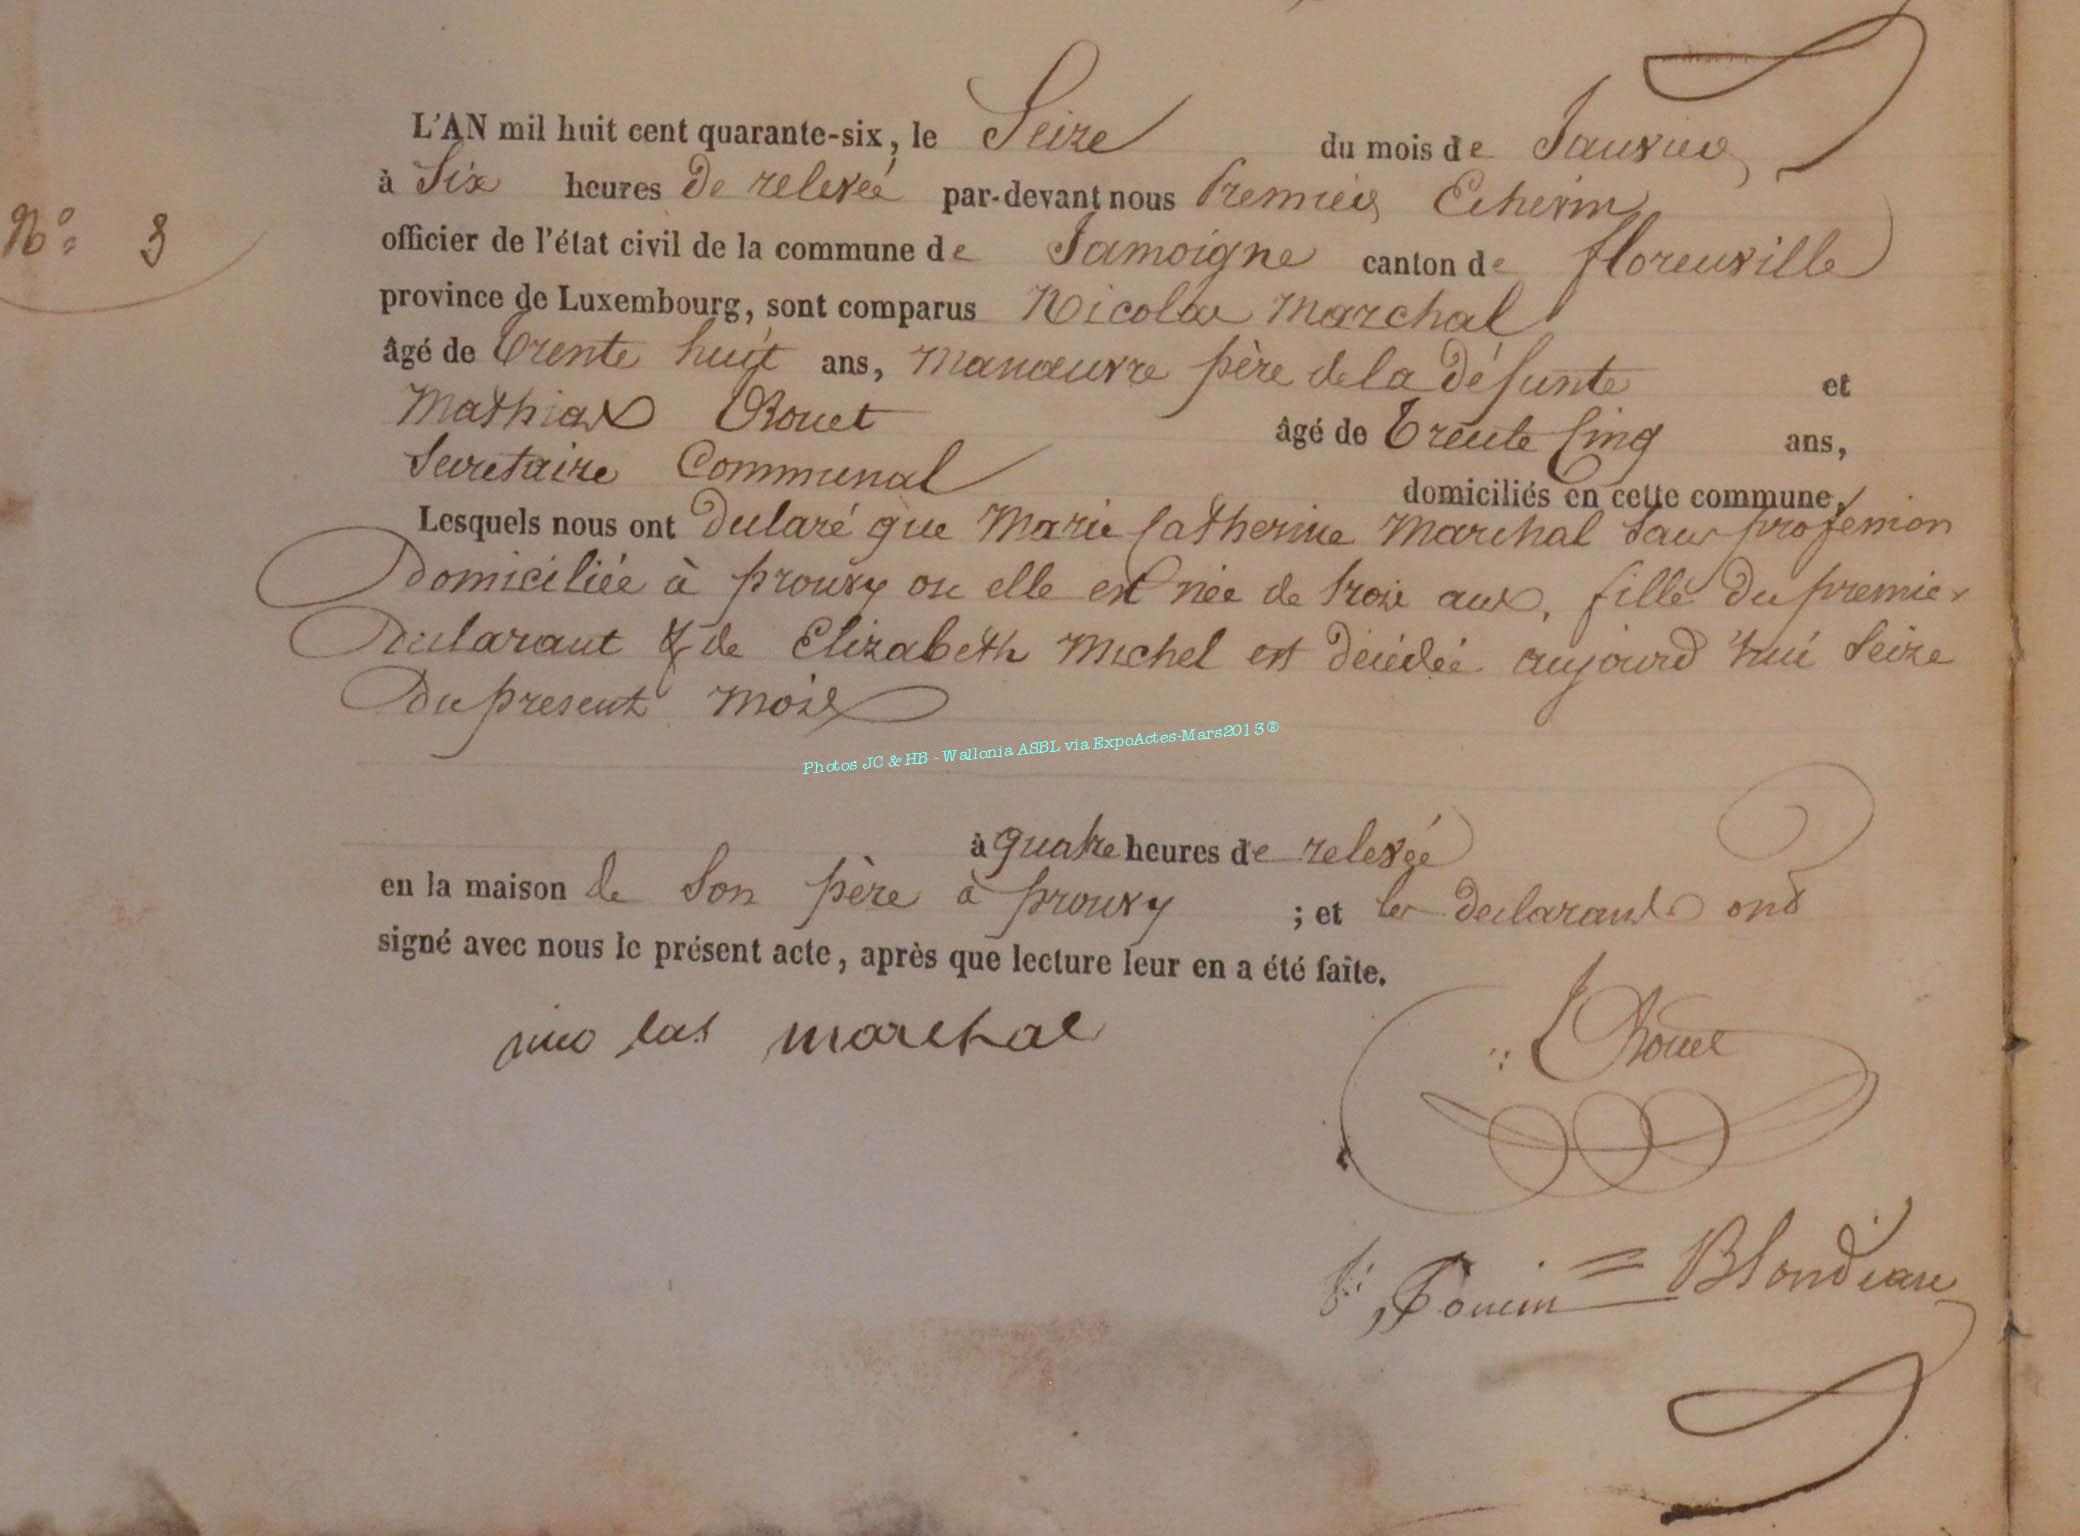 L'AN mil huit cent quarante-six, le Seize du mois de Janvier
à Six heures de relevée par-devant nous Premier Echevin
N° 3
officier de l'état civil de la commune de Jamoigne canton de florenville
province de Luxembourg, sont comparus Nicolas Marchal
âgé de trente huit ans, Manœuvre père de la défunte et
Mathias Rouet âgé de trente cinq ans,
Secretaire Communal domiciliés en cette commune,
Lesquels nous ont declaré que Marie Catherine Marchal sans profession
Domiciliée à prouvy ou elle est née de trois ans, fille du premier
Declarant & de Elizabeth Michel est décédée aujourd'hui Seize
Du present mois
Photos JC & HB - Wallonia ASBL via ExpoActes-Mars2013®
à quatre heures de relevée
en la maison de son père à prouvy ; et les declarants ont
signé avec nous le présent acte, après que lecture leur en a été faite.
nico las marchal
Rouet
Blondiau